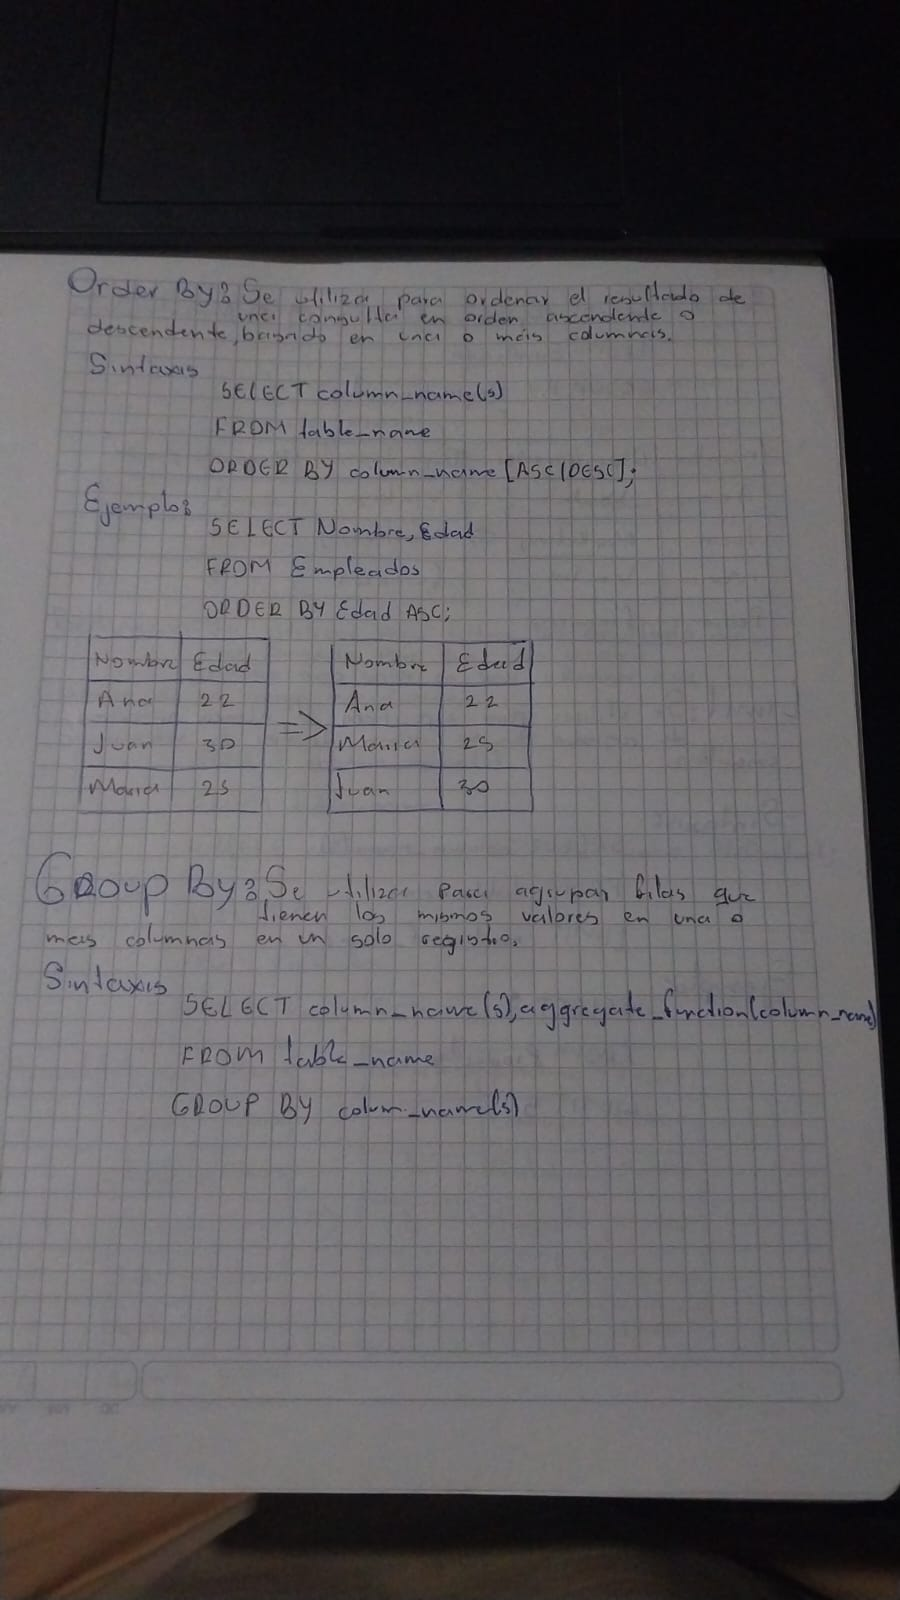 Order By: Se utiliza para ordenar el resultado de
una consulta en orden ascendente o
descendente, basado en una o más columnas.
Sintaxis
SELECT column_name(s)
FROM table_name
ORDER BY column_name [ASC|DESC];
Ejemplo:
SELECT Nombre, Edad
FROM Empleados
ORDER BY Edad ASC;
Nombre Edad
Ana 22
Juan 30
Maria 25
=>
Nombre Edad
Ana 22
Maria 25
Juan 30
Group By: Se utiliza para agrupar filas que
tienen los mismos valores en una o
mas columnas en un solo registro.
Sintaxis
SELECT column_name(s), aggregate_function(column_name)
FROM table_name
GROUP BY colum_name(s)